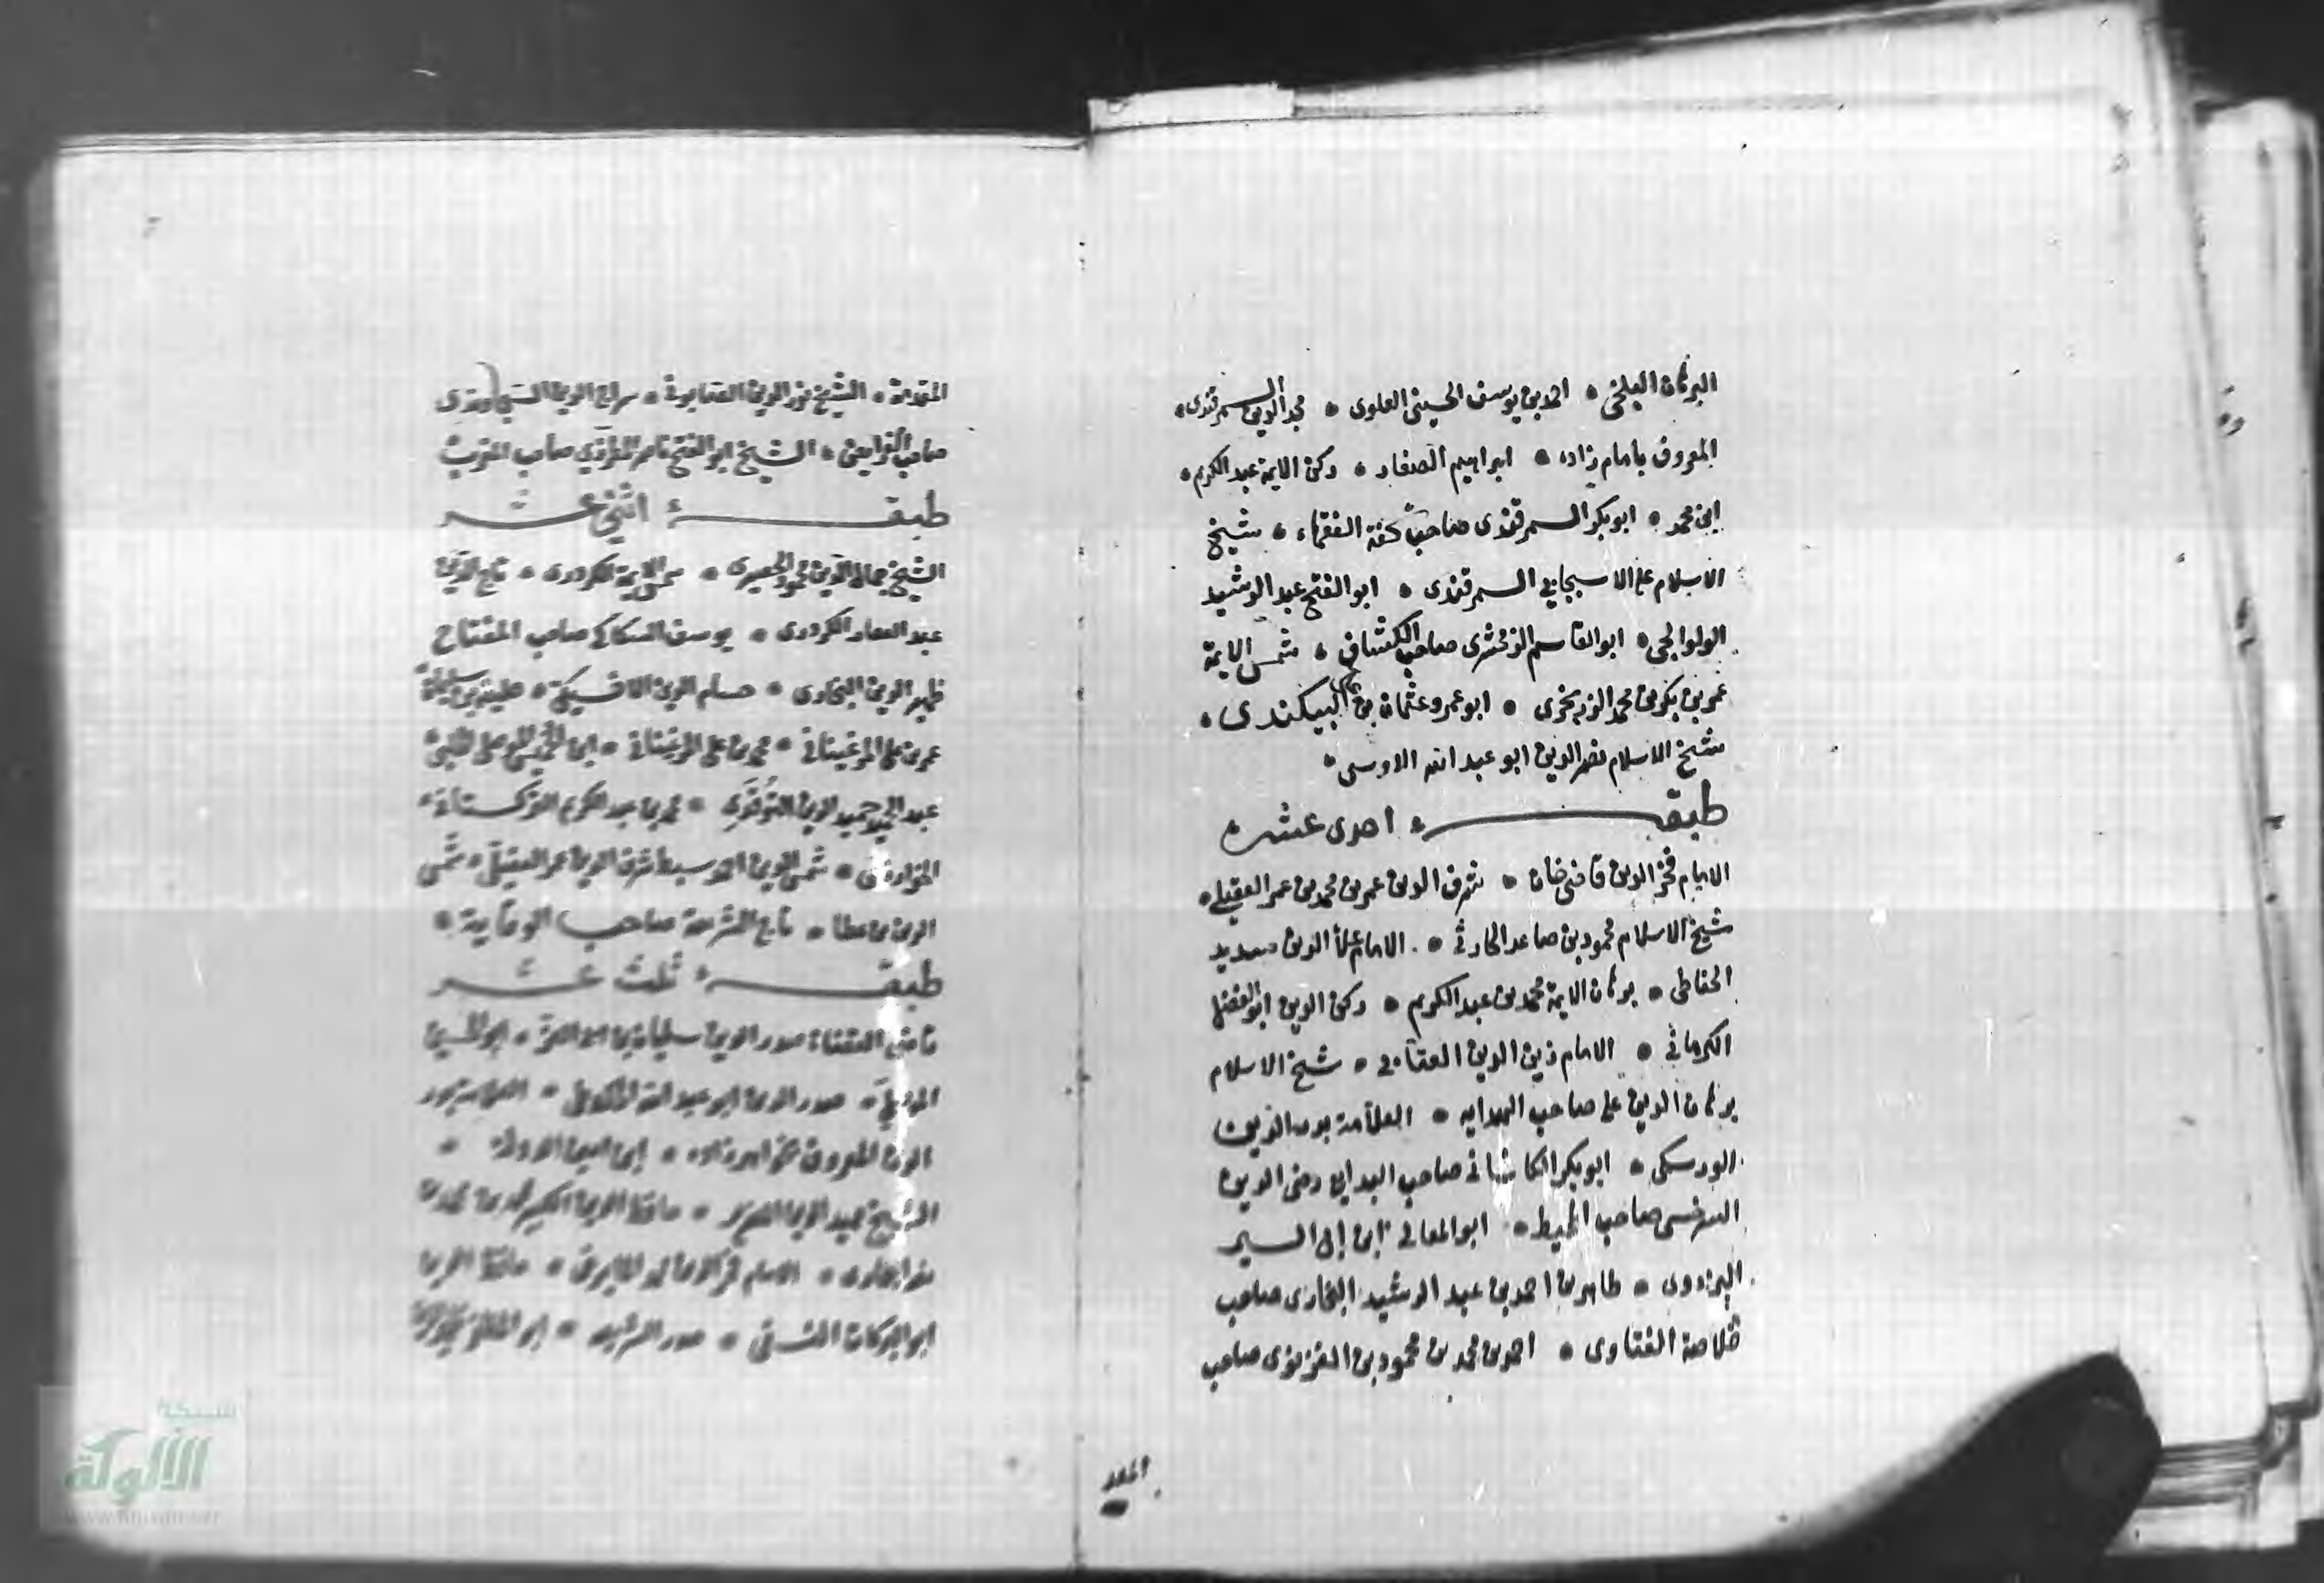 البرهان البلخي • احمد بن يوسف الحسيني العلوي • مجد الدين السمرقندى •
المعروف بامام زاده • ابراهيم الصفار • ركن الايمة عبد الكريم •
ابن محمد • ابو بكر السمرقندى صاحب تحفة الفقهاء • شيخ
الاسلام على الاسبيجابي السمرقندى • ابو الفتح عبد الرشيد
الولوالجى • ابو القاسم الزمخشرى صاحب الكشاف • شمس الايمة
عمر بن بكر بن محمد الزرنجرى • ابو عمرو عثمان بن على البيكندى •
شيخ الاسلام نصر الدين ابو عبد الله الاوسى •
طبقة احدى عشر
الامام فخر الدين قاضى خان • شرف الدين عمر بن محمد بن عمر العقيلي •
شيخ الاسلام محمود بن صاعد الحارثي • الامام علأ الدين سديد
الحناطى • برهان الايمة محمد بن عبد الكريم • ركن الدين ابو الفضل
الكرماني • الامام زين الدين العتابي • شيخ الاسلام
برهان الدين على صاحب الهدايه • العلامة بدر الدين
الورسكى • ابو بكر الكاشانى صاحب البدايع رضى الدين
السرخسى صاحب المحيط • ابو المعالى ابن ابى اليسر
البزدوى • طاهر بن احمد بن عبد الرشيد البخارى صاحب
خلاصة الفتاوى • احمد بن محمد بن محمود بن الغزنوى صاحب
المقدمة • الشيخ نور الدين الصابوني • سراج الدين السجاوندى
صاحب الفرايض • الشيخ ابو الفتح ناصر المطرزي صاحب المغرب
طبقة اثنى عشر
الشيخ جمال الدين محمود الحصيرى • شمس الايمة الكردرى • تاج الدين
عبد الغفار الكردرى • يوسف السكاكى صاحب المفتاح
ظهير الدين البخارى • حسام الدين الاخسيكتى •
عمر بن على المرغينانى • محمد بن على المرغينانى •
عبد الحميد حميد الدين • محمد بن عبد الكريم التركستانى •
الخوارزمى • شمس الدين احمد سبط شرف الدين عمر العقيلى • شمس
الدين بن عطا • تاج الشريعة صاحب الوقاية •
طبقة ثلث عشر
قاضى القضاة صدر الدين سليمان بن ابى العز •
صدر الدين ابو عبد الله •
الدين المعروف بخواهر زاده •
الشيخ حميد الدين الضرير • حافظ الدين الكبير محمد بن محمد بن
نصر البخارى • الامام فخر الدين محمد المايمرغى • حافظ الدين
ابو البركات النسفى • صدر الشريعه •
شبكة
الألوكة
www.alukah.net